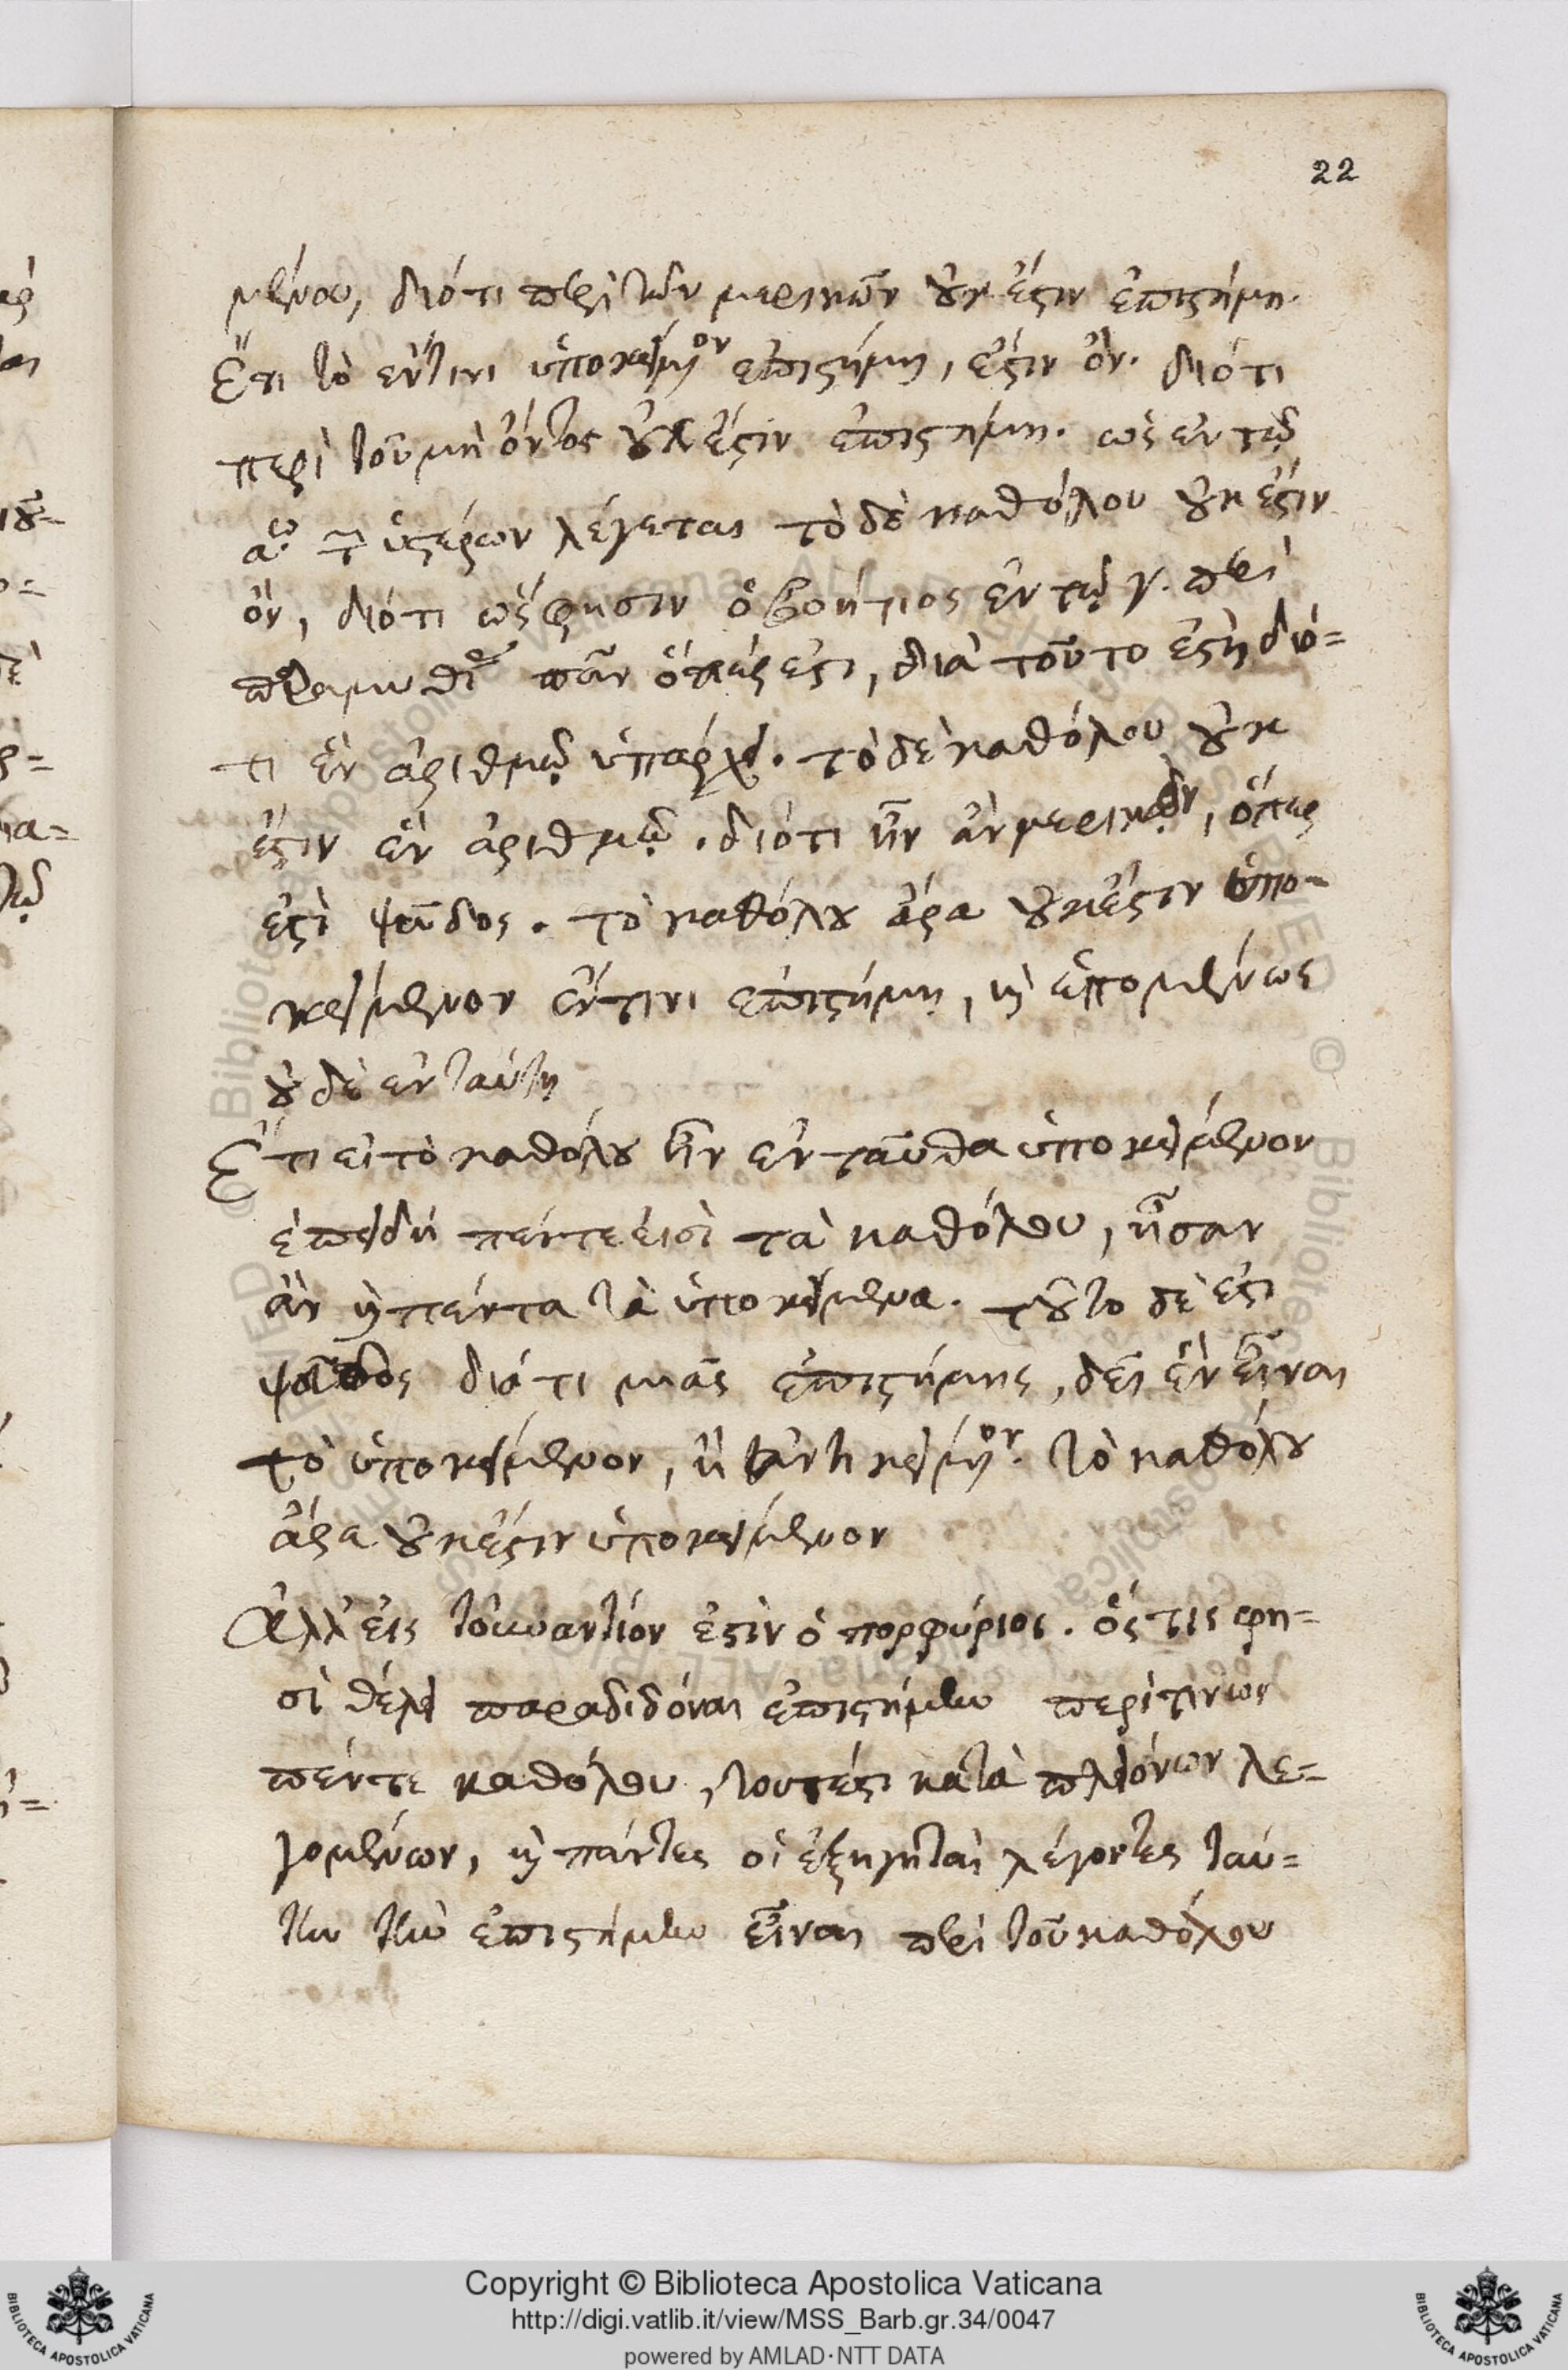 22
μένου, διότι περὶ τῶν μερικῶν οὐκ ἔστιν ἐπιστήμη.
Ἔτι τὸ ἔν τινι ὑποκείμενον ἐπιστήμῃ, ἔστιν ὄν. διότι
περὶ τοῦ μὴ ὄντος οὐκ ἔστιν ἐπιστήμη. ὡς ἐν τῷ
αῳ τ̅ ὑστέρων λέγεται τὸ δὲ καθόλου οὐκ ἔστιν
ὄν, διότι ὥς φησιν ὁ βοήτιος ἐν τῷ γ. περὶ
παραμυθίας πᾶν ὅπερ ἐστι, διὰ τοῦτο ἐστὶ διό=
τι ἓν ἀριθμῷ ὑπάρχει. τὸ δὲ καθόλου οὐκ
ἔστιν ἓν ἀριθμῷ. διότι ἦν ἂν μερικὸν, ὅπερ
ἐστὶ ψεῦδος. τὸ καθόλου ἄρα οὐκ ἔστιν ὑπο-
κείμενον ἔν τινι ἐπιστήμῃ, καὶ ἑπομένως
οὐδὲ ἐν ταύτῃ
Ἔτι εἰ τὸ καθόλου ἦν ἐνταῦθα ὑποκείμενον
ἐπειδὴ πέντε εἰσὶ τὰ καθόλου, ἦσαν
ἂν καὶ πέντα τὰ ὑποκείμενα. τοῦτο δὲ ἐστι
ψεῦδος διότι μιᾶς ἐπιστήμης, δεῖ ἓν εἶναι
τὸ ὑποκείμενον, ἢ ἀντικείμενον. τὸ καθόλου
ἄρα οὐκ ἔστιν ὑποκείμενον
Ἀλλ' εἰς τοὐναντίον ἐστὶν ὁ πορφύριος. ὅς τις φη=
σὶ θέλει παραδιδόναι ἐπιστήμην περὶ τινῶν
πέντε καθόλου, τουτέστι κατὰ πλειόνων λε=
γομένων, καὶ πάντες οἱ ἐξηγηταὶ λέγοντες ταύ=
την τὴν ἐπιστήμην εἶναι περὶ τοῦ καθόλου
Copyright © Biblioteca Apostolica Vaticana
http://digi.vatlib.it/view/MSS_Barb.gr.34/0047
powered by AMLAD·NTT DATA